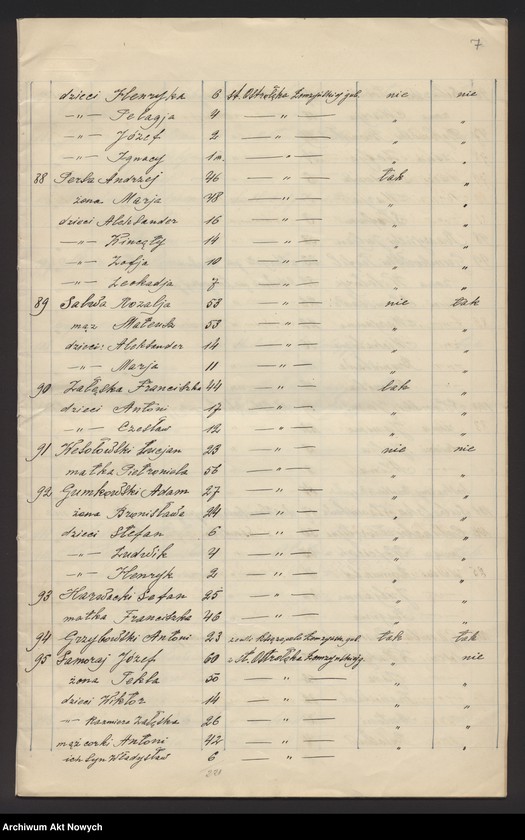 7
dzieci Henryka 6 st. Ostrołęka Łomżyńskiej gub. nie nie
-„- Pelagja 4 — „ — „ „
-„- Józef 2 — „ — „ „
-„- Ignacy 1 m. — „ — „ „
88 Perła Andrzej 46 — „ — tak „
żona Marja 48 — „ — „ „
dzieci Aleksander 16 — „ — „ „
-„- Wincęty 14 — „ — „ „
-„- Zofja 10 — „ — „ „
-„- Leokadja 7 — „ — „ „
89 Rozalja 53 — „ — nie tak
mąż Mateusz 53 — „ — „ „
dzieci: Aleksander 14 — „ — „ „
-„- Marja 11 — „ — „ „
90 Załęska Franciszka 44 — „ — tak „
dzieci Antoni 17 — „ — „ „
-„- Czesław 12 — „ — „ „
91 Wesołowski Łucjan 23 — „ — nie nie
matka Pietronela 56 — „ — „ „
92 Gumkowski Adam 27 — „ — „ „
żona Bronisława 24 — „ — „ „
dzieci Stefan 6 — „ — „ „
-„- Ludwik 4 — „ — „ „
-„- Henryk 2 — „ — „ „
93 Stefan 25 — „ — „ „
matka Franciszka 46 — „ — „ „
94 Grzybowski Antoni 23 gub. tak tak
95 Samoraj Józef 60 z St. Ostrołęka Łomżyńskiej g. „ nie
żona Tekla 50 — „ — „ „
dzieci Wiktor 14 — „ — „ „
-„- Kazmiera Załęska 26 — „ — „ „
mąż corki Antoni 42 — „ — „ „
ich syn Władysław 6 — „ — „ „
Archiwum Akt Nowych